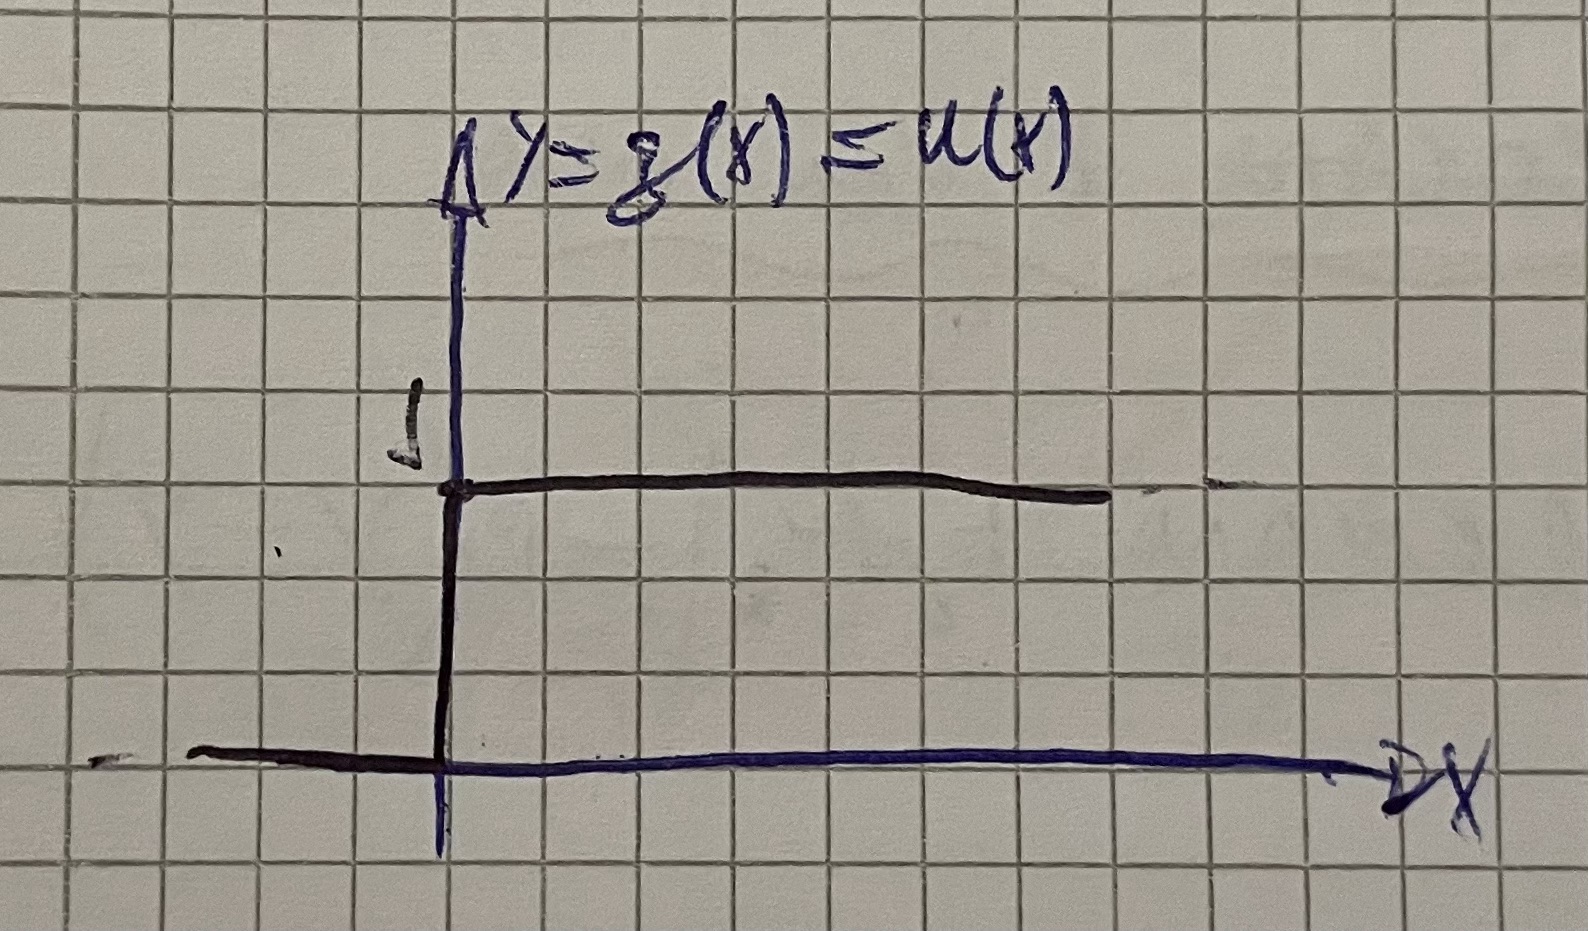 y = g(x) = u(x)
1
x